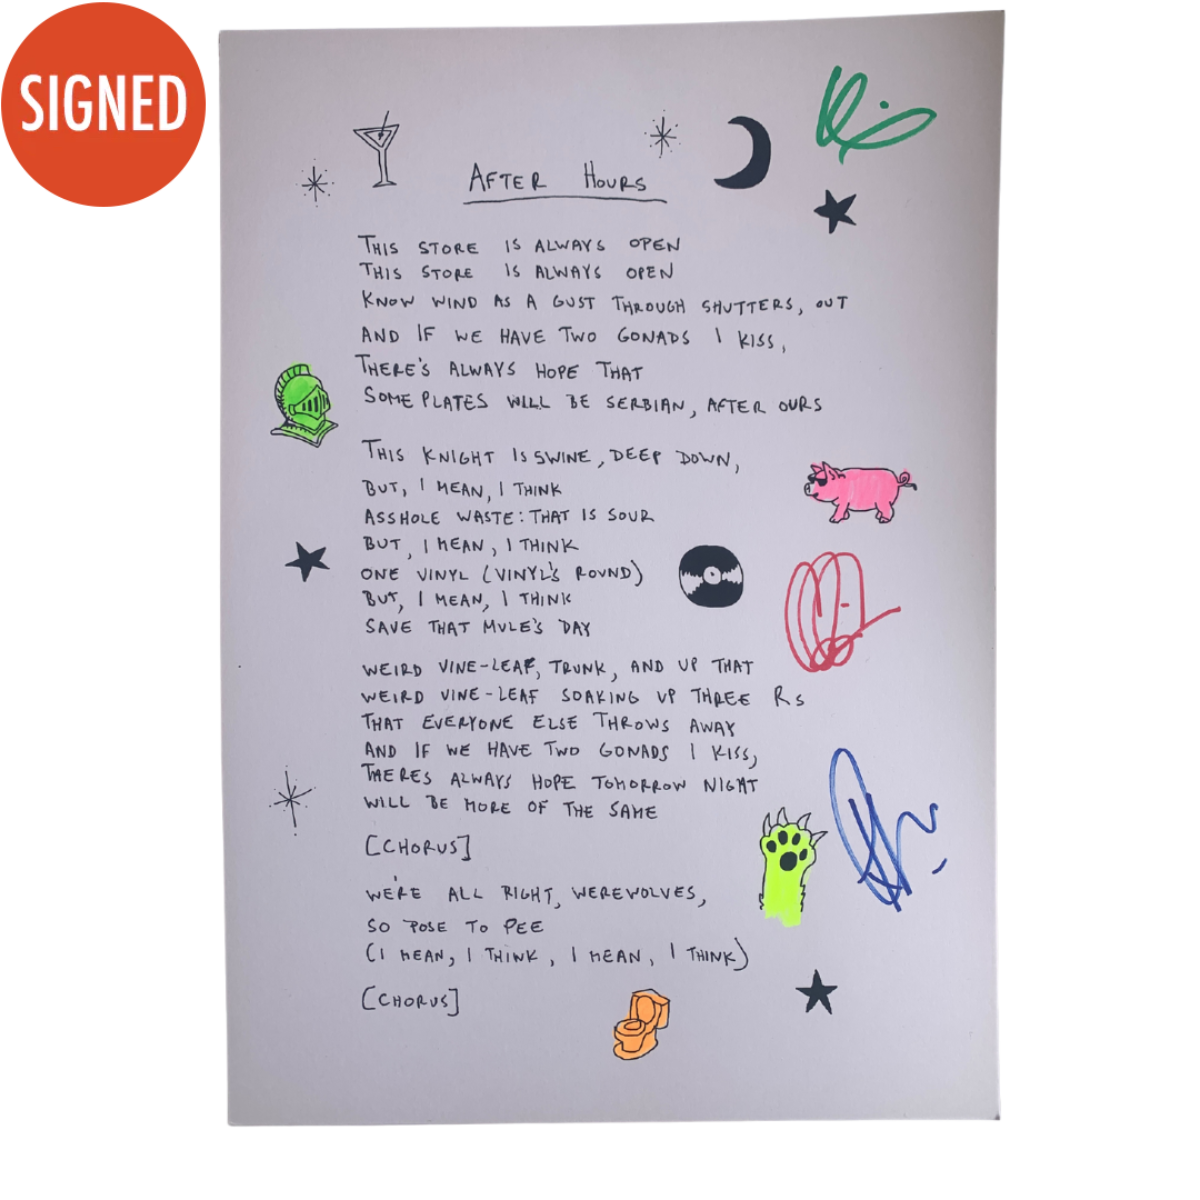 SIGNED
AFTER HOURS
THIS STORE IS ALWAYS OPEN
THIS STORE IS ALWAYS OPEN
KNOW WIND AS A GUST THROUGH SHUTTERS, OUT
AND IF WE HAVE TWO GONADS I KISS,
THERE'S ALWAYS HOPE THAT
SOME PLATES WILL BE SERBIAN, AFTER OURS
THIS KNIGHT IS SWINE, DEEP DOWN,
BUT, I MEAN, I THINK
ASSHOLE WASTE: THAT IS SOUR
BUT, I MEAN, I THINK
ONE VINYL (VINYL'S ROUND)
BUT, I MEAN, I THINK
SAVE THAT MULE'S DAY
WEIRD VINE-LEAF, TRUNK, AND UP THAT
WEIRD VINE-LEAF SOAKING UP THREE Rs
THAT EVERYONE ELSE THROWS AWAY
AND IF WE HAVE TWO GONADS I KISS,
THERES ALWAYS HOPE TOMORROW NIGHT
WILL BE MORE OF THE SAME
[CHORUS]
WE'RE ALL RIGHT, WEREWOLVES,
SO POSE TO PEE
(I MEAN, I THINK, I MEAN, I THINK)
[CHORUS]